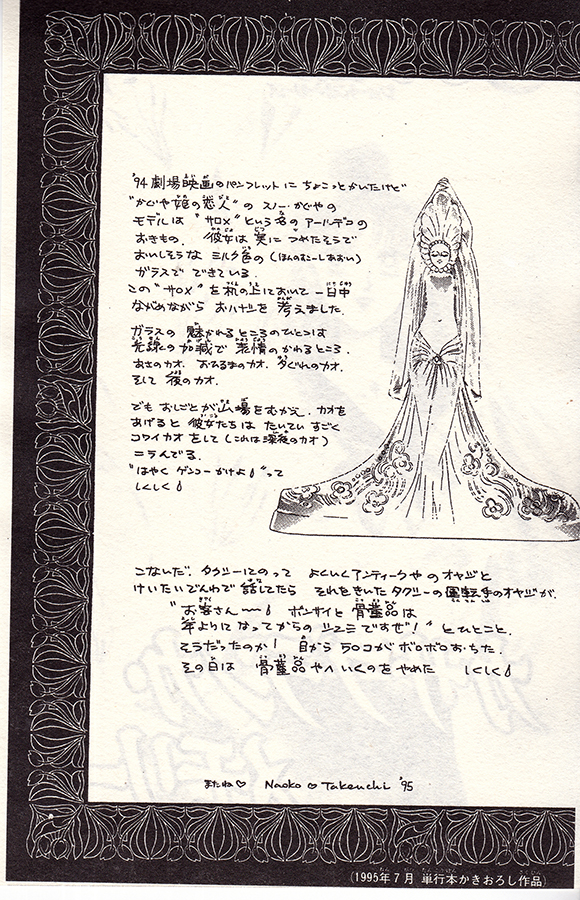 '94 劇場映画のパンフレットに ちょこっとかいたけど
"かぐや姫の恋人"の スノー・かぐやの
モデルは "サロメ"という名の アールデコの
おきもの. 彼女は 実に つれたそうで
おいしそうな ミルク色の (ほんのすこーしあおい)
ガラスで できている.
この"サロメ"を 机の上において 一日中
ながめながら おハナシを 考えました.
ガラスの 魅かれるところのひとつは
光線の 加減で 表情の かわるところ.
あさのカオ. おひるまのカオ. 夕ぐれのカオ.
そして 夜のカオ.
でも おしごとが 山場をむかえ. カオを
あげると 彼女たちは たいてい すごく
コワイカオ をして (これは深夜のカオ)
ニラんでる.
"はやく ゲンコーかけよ"って
しくしく
こないだ. タクシーにのって よくいくアンティークやの オヤジと
けいたいでんわで 話してたら それをきいた タクシーの 運転手のオヤジが.
"お客さん〜〜 ボンサイと 骨董品は
年よりに なってからの シュミ ですぜ!" と ひとこと.
そうだったのか! 目から 50コがボロボロおちた.
その日は 骨董品やへ いくのを やめた しくしく
またね♡ Naoko ♡ Takeuchi '95
(1995年7月 単行本かきおろし作品)